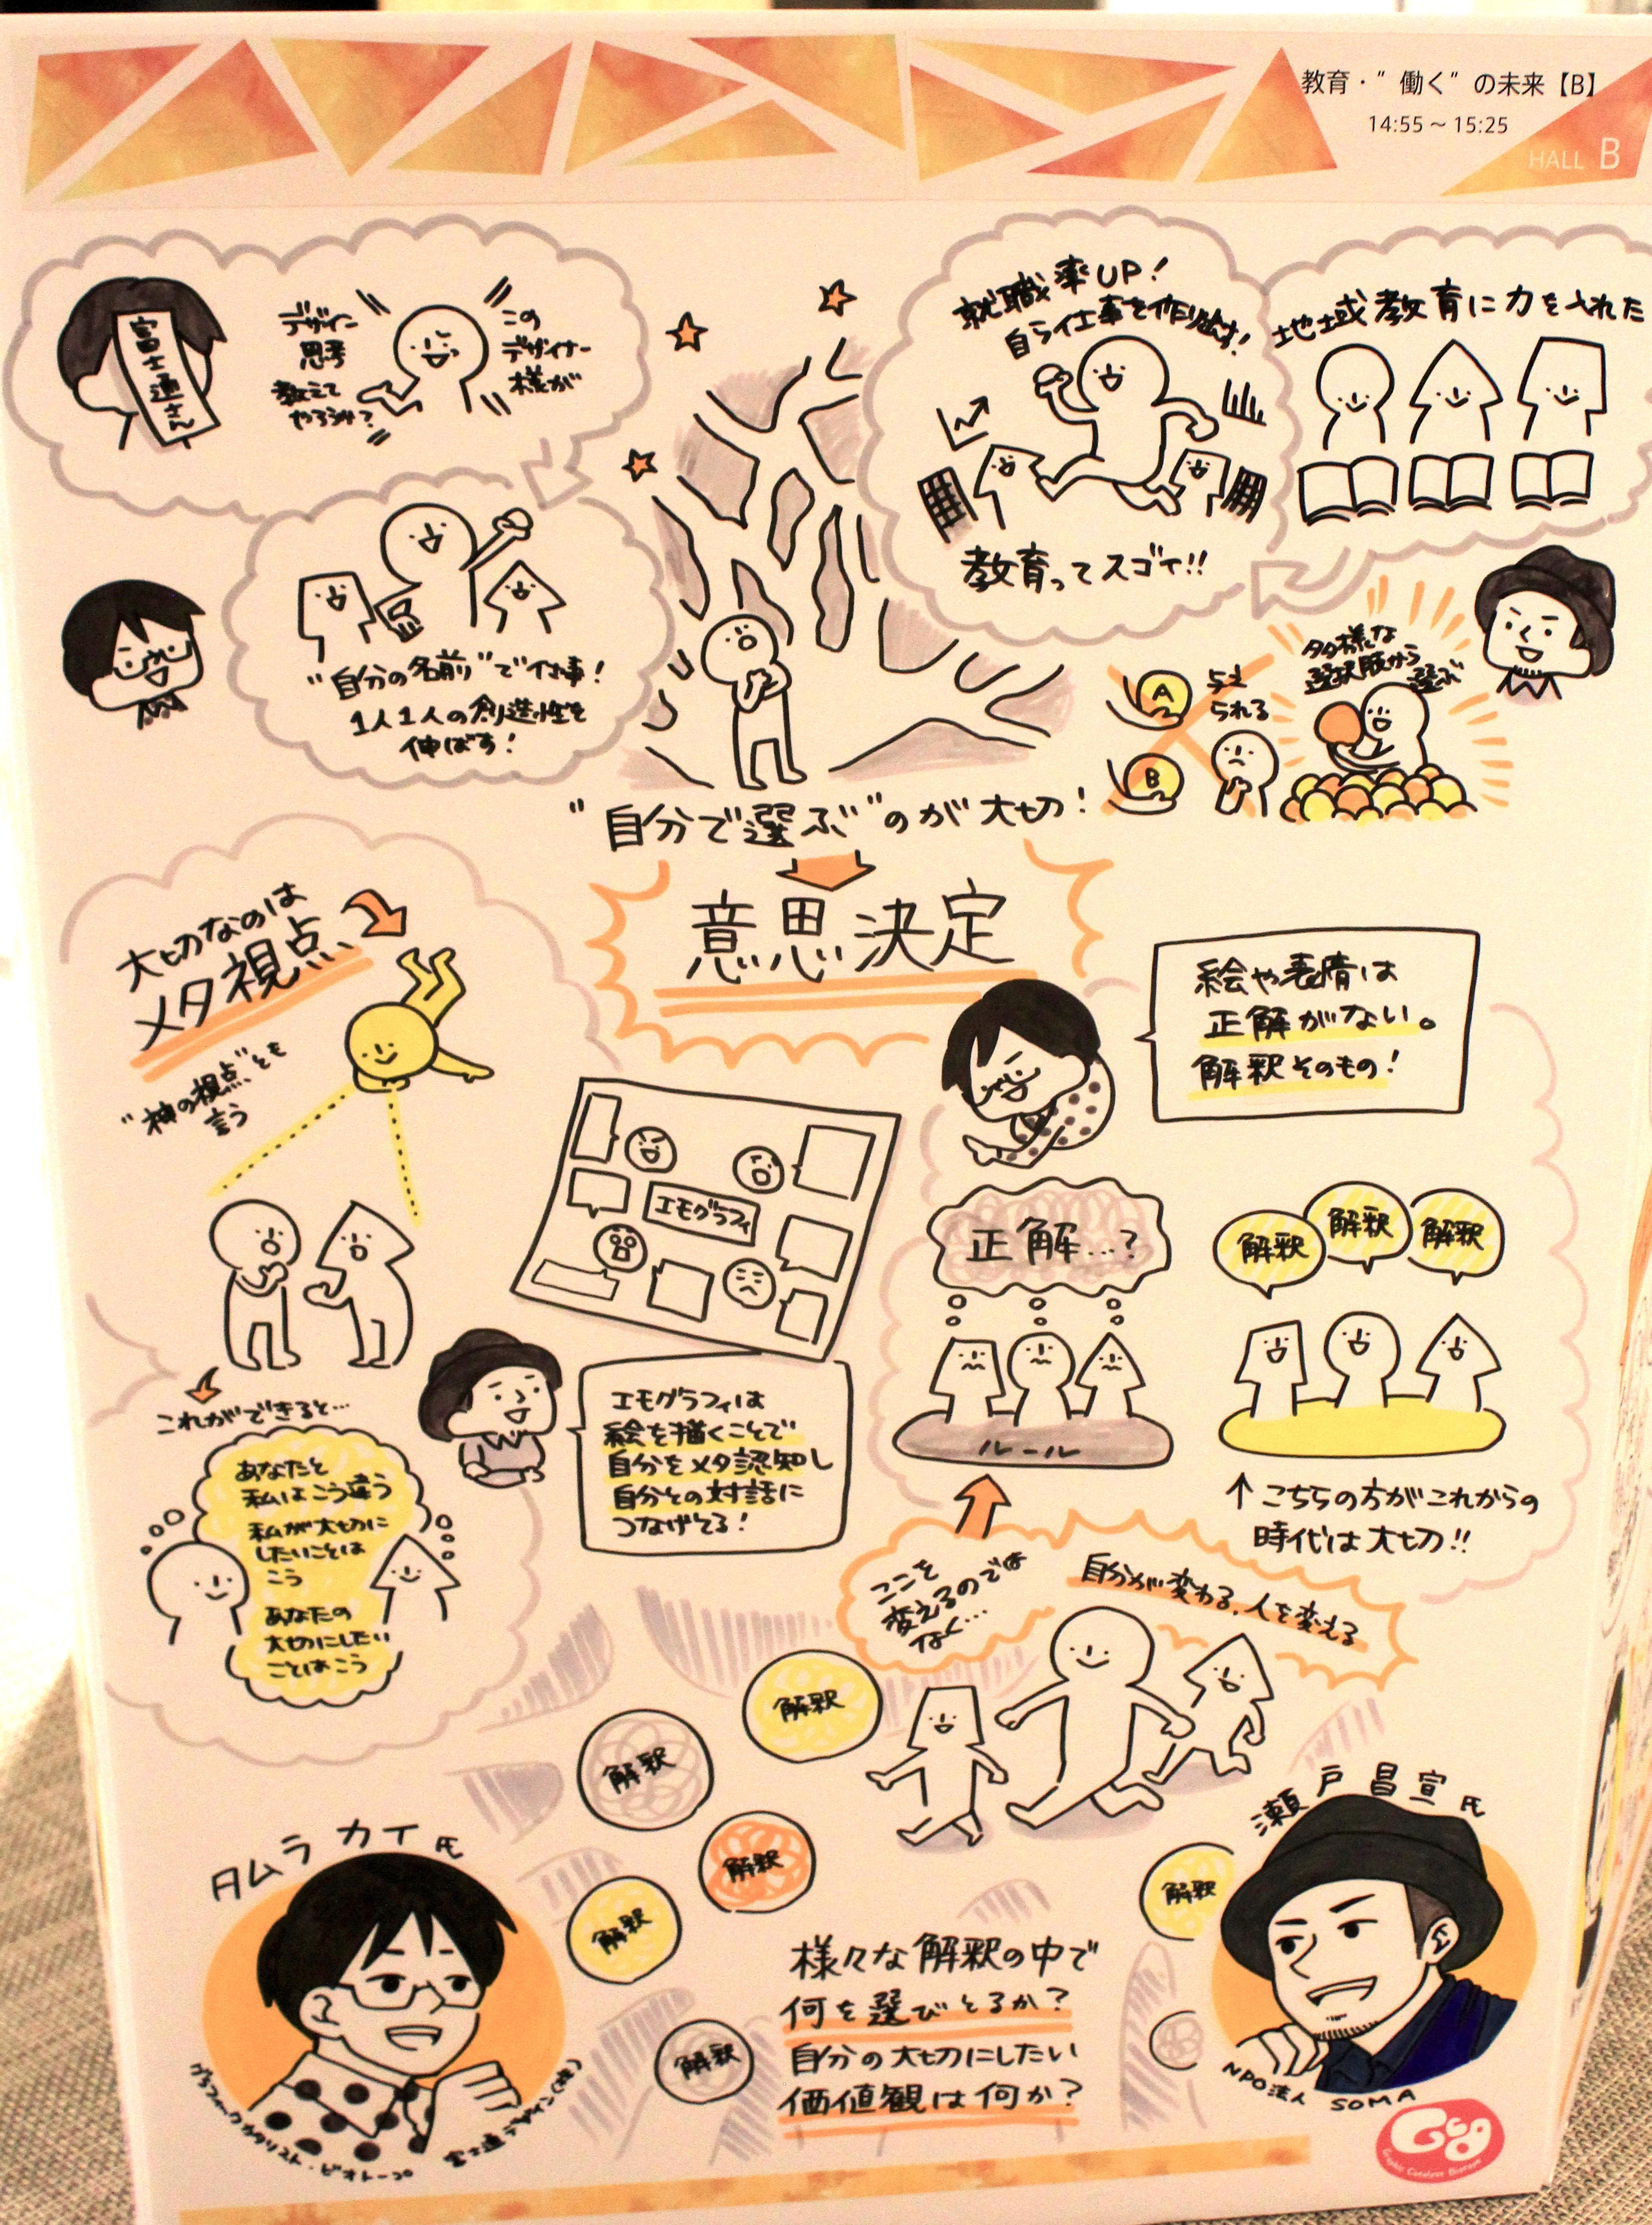 教育・”働く“の未来【B】
14:55～15:25
HALL B
富士通さん
デザイン
思考
教えて
やろうか？
この
デザイナー
様が
"自分の名前"で仕事！
1人1人の創造性を
伸ばす！
就職率UP！
自ら仕事を作り出す！
教育ってスゴイ!!
地域教育に力を入れた
A
B
与え
られる
多様な
選択肢から
選ぶ
"自分で選ぶ"のが大切！
意思決定
大切なのは
メタ視点
"神の視点"とも
言う
これができると…
あなたと
私はこう違う
私が大切に
したいことは
こう
あなたの
大切にしたい
ことはこう
エモグラフィ
エモグラフィは
絵を描くことで
自分をメタ認知し
自分との対話に
つなげてる！
絵や表情は
正解がない。
解釈そのもの！
正解…？
ルール
解釈
解釈
解釈
↑こちらの方がこれからの
時代は大切!!
ここを
変えるのでは
なく…
自分が変わる、人を変える
解釈
解釈
解釈
解釈
解釈
解釈
様々な解釈の中で
何を選びとるか？
自分の大切にしたい
価値観は何か？
タムラカイ氏
グラフィックカタリスト・ビオトープ
富士通デザイン(株)
瀬戸昌宣氏
NPO法人 SOMA
Gcg
Graphic Catalyst Biotope